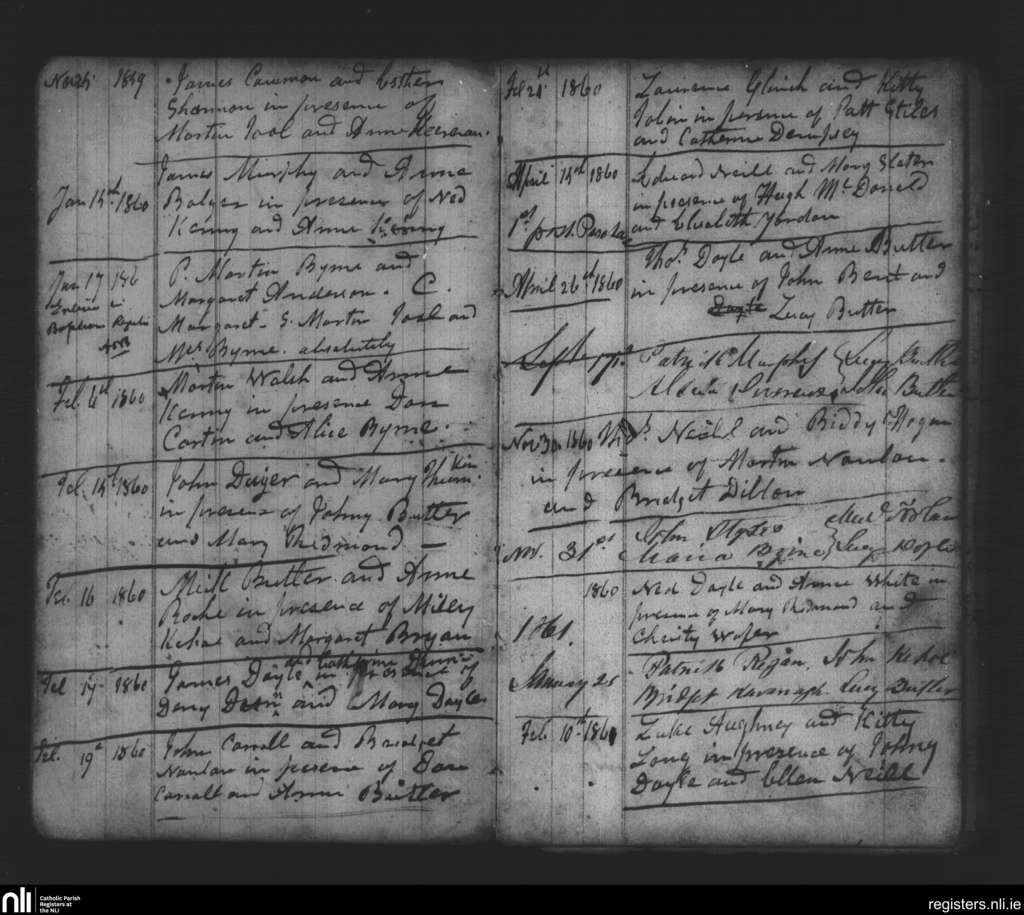 1859 James Cawman and Esther
Shannon in presence of
Martin Tool and Anne
Jan 15th 1860 James Murphy and Anne
Bolger in presence of Ned
Kenny and Anne Kenny
Jan 17 186 P. Martin Byrne and
Margaret Anderson. C.
in
Margaret. S. Martin Tool and
Baptism
Mrs Byrne. absolutely
Feb. 1860 Martin Walsh and Anne
Kenny in presence Dan
and Alice Byrne.
Feb. 15th 1860 John Dwyer and Mary
in presence of Johny Butler
and Mary Redmond
Feb. 16 1860 Butler and Anne
Roche in presence of Miley
Kehoe and Margaret Bryan
and Catherine
Feb 17 1860 James Doyle in presence of
Deny and Mary Doyle
Feb. 19th 1860 John Carroll and Bridget
Nowlan in presence of Dan
Carroll and Anne Butler
Feb 21st 1860 Laurence and Kitty
Tobin in presence of Patt
and Catherine Dempsey
April 15th 1860 Edward Neill and Mary Slater
in presence of Hugh McDonald
1st post Pascha and Elisabeth Jordan
April 26th 1860 Thos. Doyle and Anne Butler
in presence of John Bent and
Doyle Lucy Butler
Sept 17th Patrick Murphy Lucy Butler
Butler
Nov 30 1860 Neill and Biddy Hogan
in presence of Martin Nowlan.
and Bridget Dillon
Nov. 31st John
Maria Byrne Lucy Doyle
1860 Ned Doyle and Anne White in
presence of Mary Redmond and
1861. Christy
January 28 Patrick Regan, John Kehoe
Bridget Kavanagh Lucy Butler
Feb. 10th 1861 Luke Hughney and Kitty
Long in presence of Johny
Doyle and Ellen Neill
nli Catholic Parish
Registers at
the NLI
registers.nli.ie